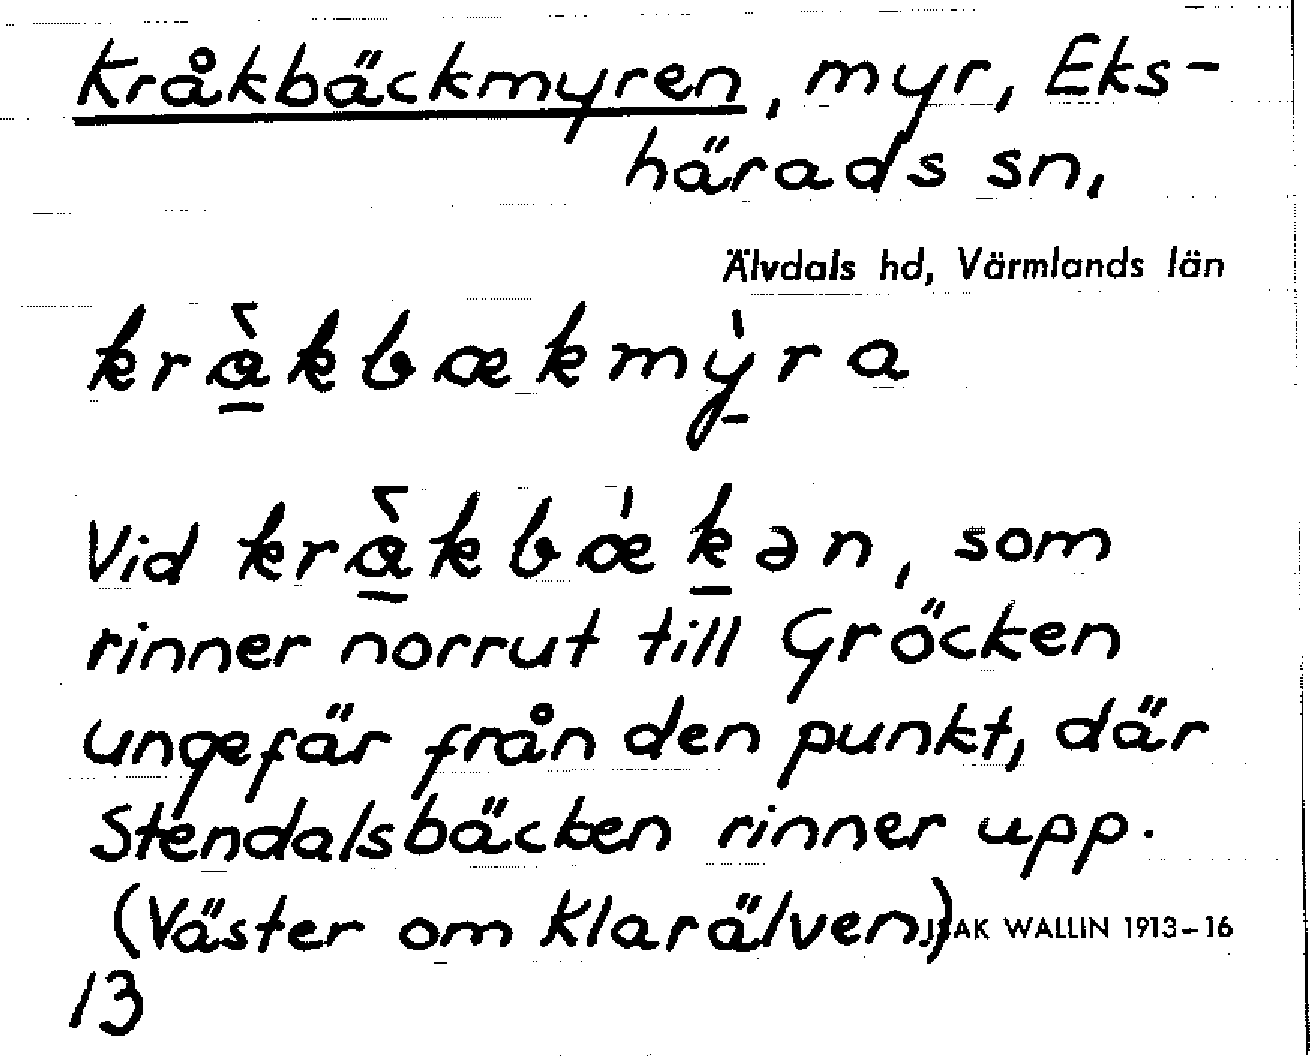 Kråkbäckmyren, myr, Eks-
härads sn,
Älvdals hd, Värmlands län
krà̠kbækmý̠ra
Vid krà̠kbǽk̠ən, som
rinner norrut till Gröcken
ungefär från den punkt, där
Stendalsbäcken rinner upp.
(Väster om Klarälven.)
ISAK WALLIN 1913–16
13